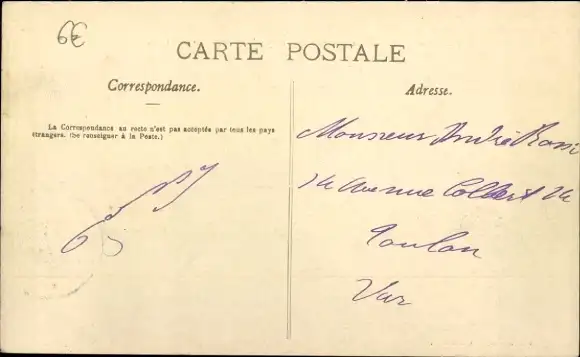 6€
CARTE POSTALE
Correspondance.
La Correspondance au recto n'est pas acceptée par tous les pays
étrangers. (Se renseigner à la Poste.)
Adresse.
Monsieur André Rossi
14 Avenue Colbert 14
Toulon
Var